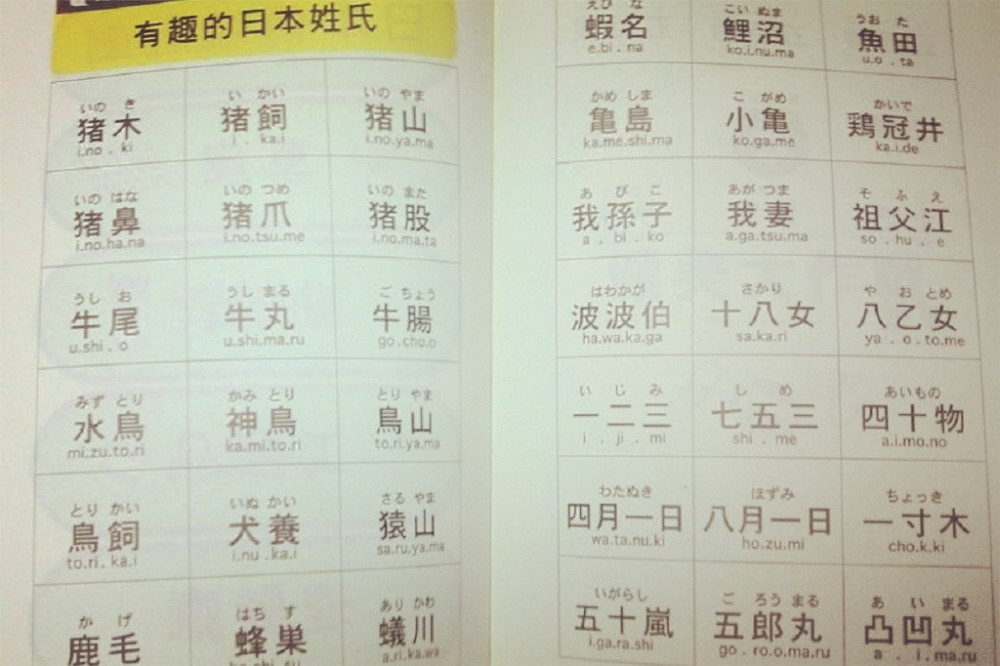 有趣的日本姓氏
いの き い かい いの やま
猪木 猪飼 猪山
i.no . ki i . ka.i i.no.ya.ma
いの はな いの つめ いの また
猪鼻 猪爪 猪股
i.no.ha.na i.no.tsu.me i.no.ma.ta
うし お うし まる ご ちょう
牛尾 牛丸 牛腸
u.shi . o u.shi.ma.ru go.cho.o
みず とり かみ とり とり やま
水鳥 神鳥 鳥山
mi.zu.to.ri ka.mi.to.ri to.ri.ya.ma
とり かい いぬ かい さる やま
鳥飼 犬養 猿山
to.ri.ka.i i.nu.ka.i sa.ru.ya.ma
か げ はち す あり かわ
鹿毛 蜂巣 蟻川
a.ri.ka.wa
えび な こい ぬま うお た
蝦名 鯉沼 魚田
e.bi . na ko.i.nu.ma u.o . ta
かめ しま こ がめ かいで
亀島 小亀 鶏冠井
ka.me.shi.ma ko.ga.me ka.i.de
あ び こ あが つま そ ふ え
我孫子 我妻 祖父江
a . bi . ko a.ga.tsu.ma so . hu . e
はわかが さかり や お とめ
波波伯 十八女 八乙女
ha.wa.ka.ga sa.ka.ri ya . o .to.me
い じ み し め あいもの
一二三 七五三 四十物
i . ji . mi shi . me a.i.mo.no
わたぬき ほずみ ちょっき
四月一日 八月一日 一寸木
wa.ta.nu.ki ho.zu.mi cho.k.ki
いがらし ご ろう まる あ い まる
五十嵐 五郎丸 凸凹丸
i.ga.ra.shi go . ro.o.ma.ru a . i .ma.ru